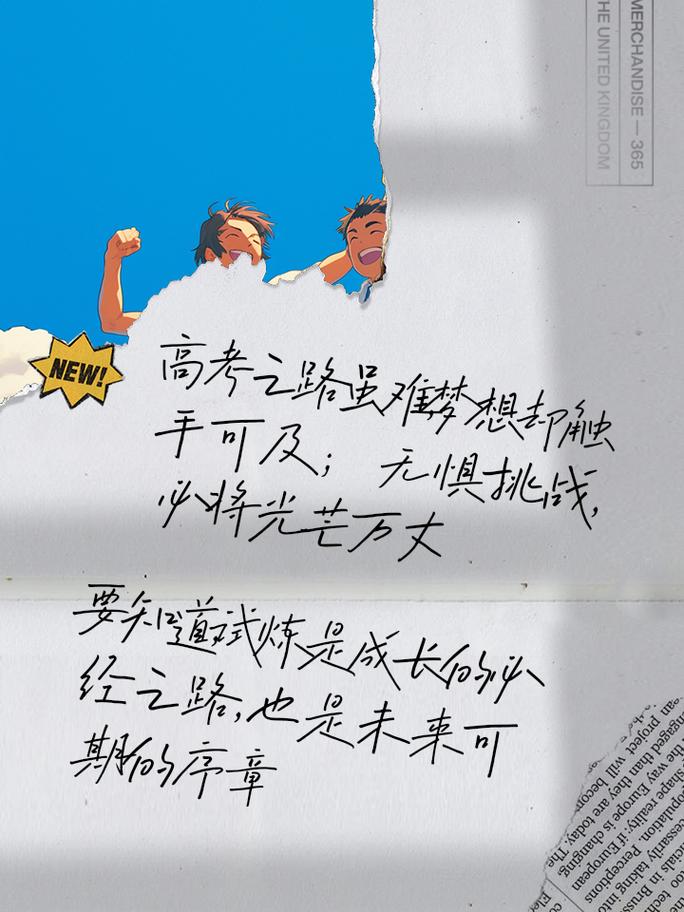 MERCHANDISE — 365
THE UNITED KINGDOM
NEW!
高考之路虽难梦想却触
手可及；无惧挑战，
必将光芒万丈
要知道试炼是成长的必
经之路，也是未来可
期的序章
project will becom
engaged than they are today. The
the way Europe is changing
shape reality: if European
population. Perceptions
cessarily taking into
icials in Bruss
too tech